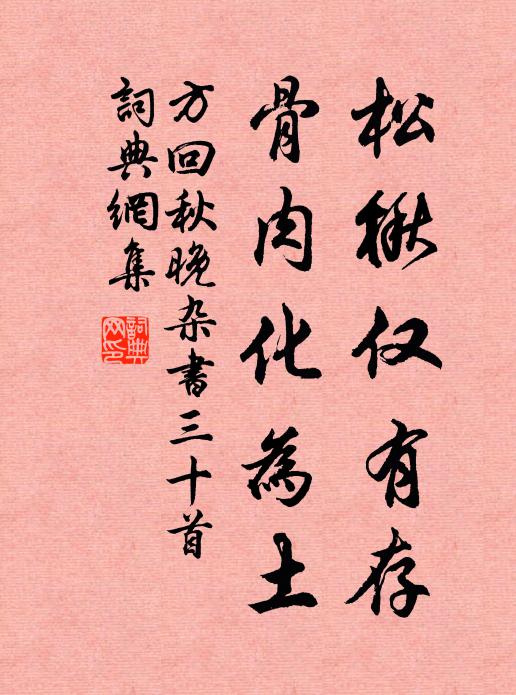 松楸仅有存
骨肉化為土
方回秋晚杂書三十首
詞典網集
詞典網印